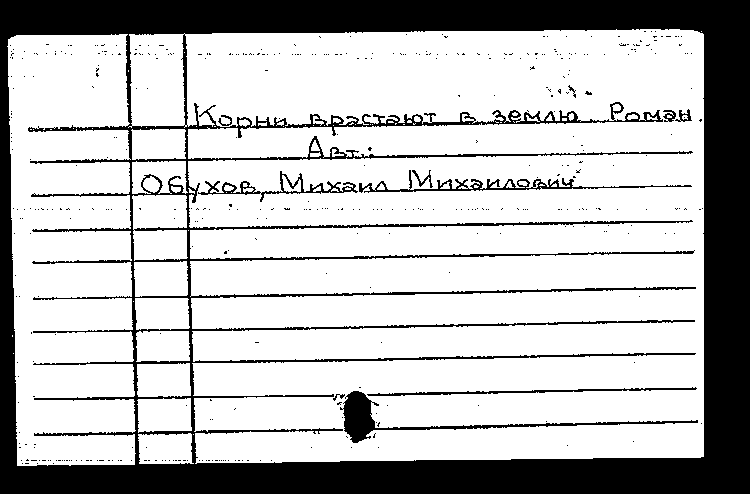 Корни врастают в землю. Роман.
Авт.:
Обухов, Михаил Михайлович